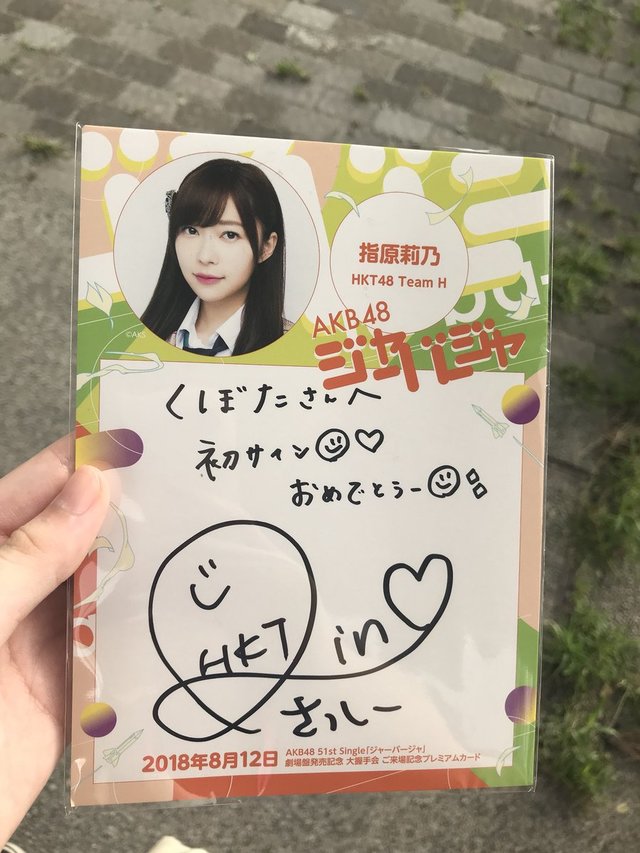 指原莉乃
HKT48 Team H
©AKS
AKB48
ジャーバージャ
くぼたさんへ
初サイン
おめでとうー
HKT in
さっしー
2018年8月12日
AKB48 51st Single「ジャーバージャ」
劇場盤発売記念 大握手会 ご来場記念プレミアムカード